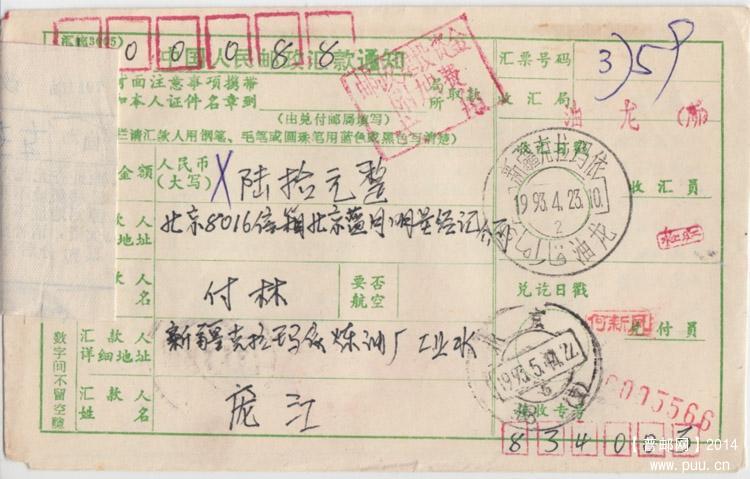 汇综3005)
000088
中国人民邮政汇款通知
背面注意事项携带
和本人证件名章到
局
所
取款
(由兑付邮局填写)
栏请汇款人用钢笔、毛笔或圆珠笔用蓝色或黑色书写清楚)
金额
人民币
(大写)
陆拾元整
款人
地址
北京8016信箱北京蓝月明星经记公司
款人
名
付林
要否
航空
汇款人
详细地址
新疆克拉玛依炼油厂工业水
汇款人
姓名
庞江
数字间不留空隙
汇票号码
3759
收汇局
油龙
收汇日戳
新疆克拉玛依
1993.4.23.10.
2
油龙
收汇员
兑讫日戳
何新凤
兑付员
北京
1993.5.
接收专号
0005566
834003
【普邮网】2014
www.puu.cn